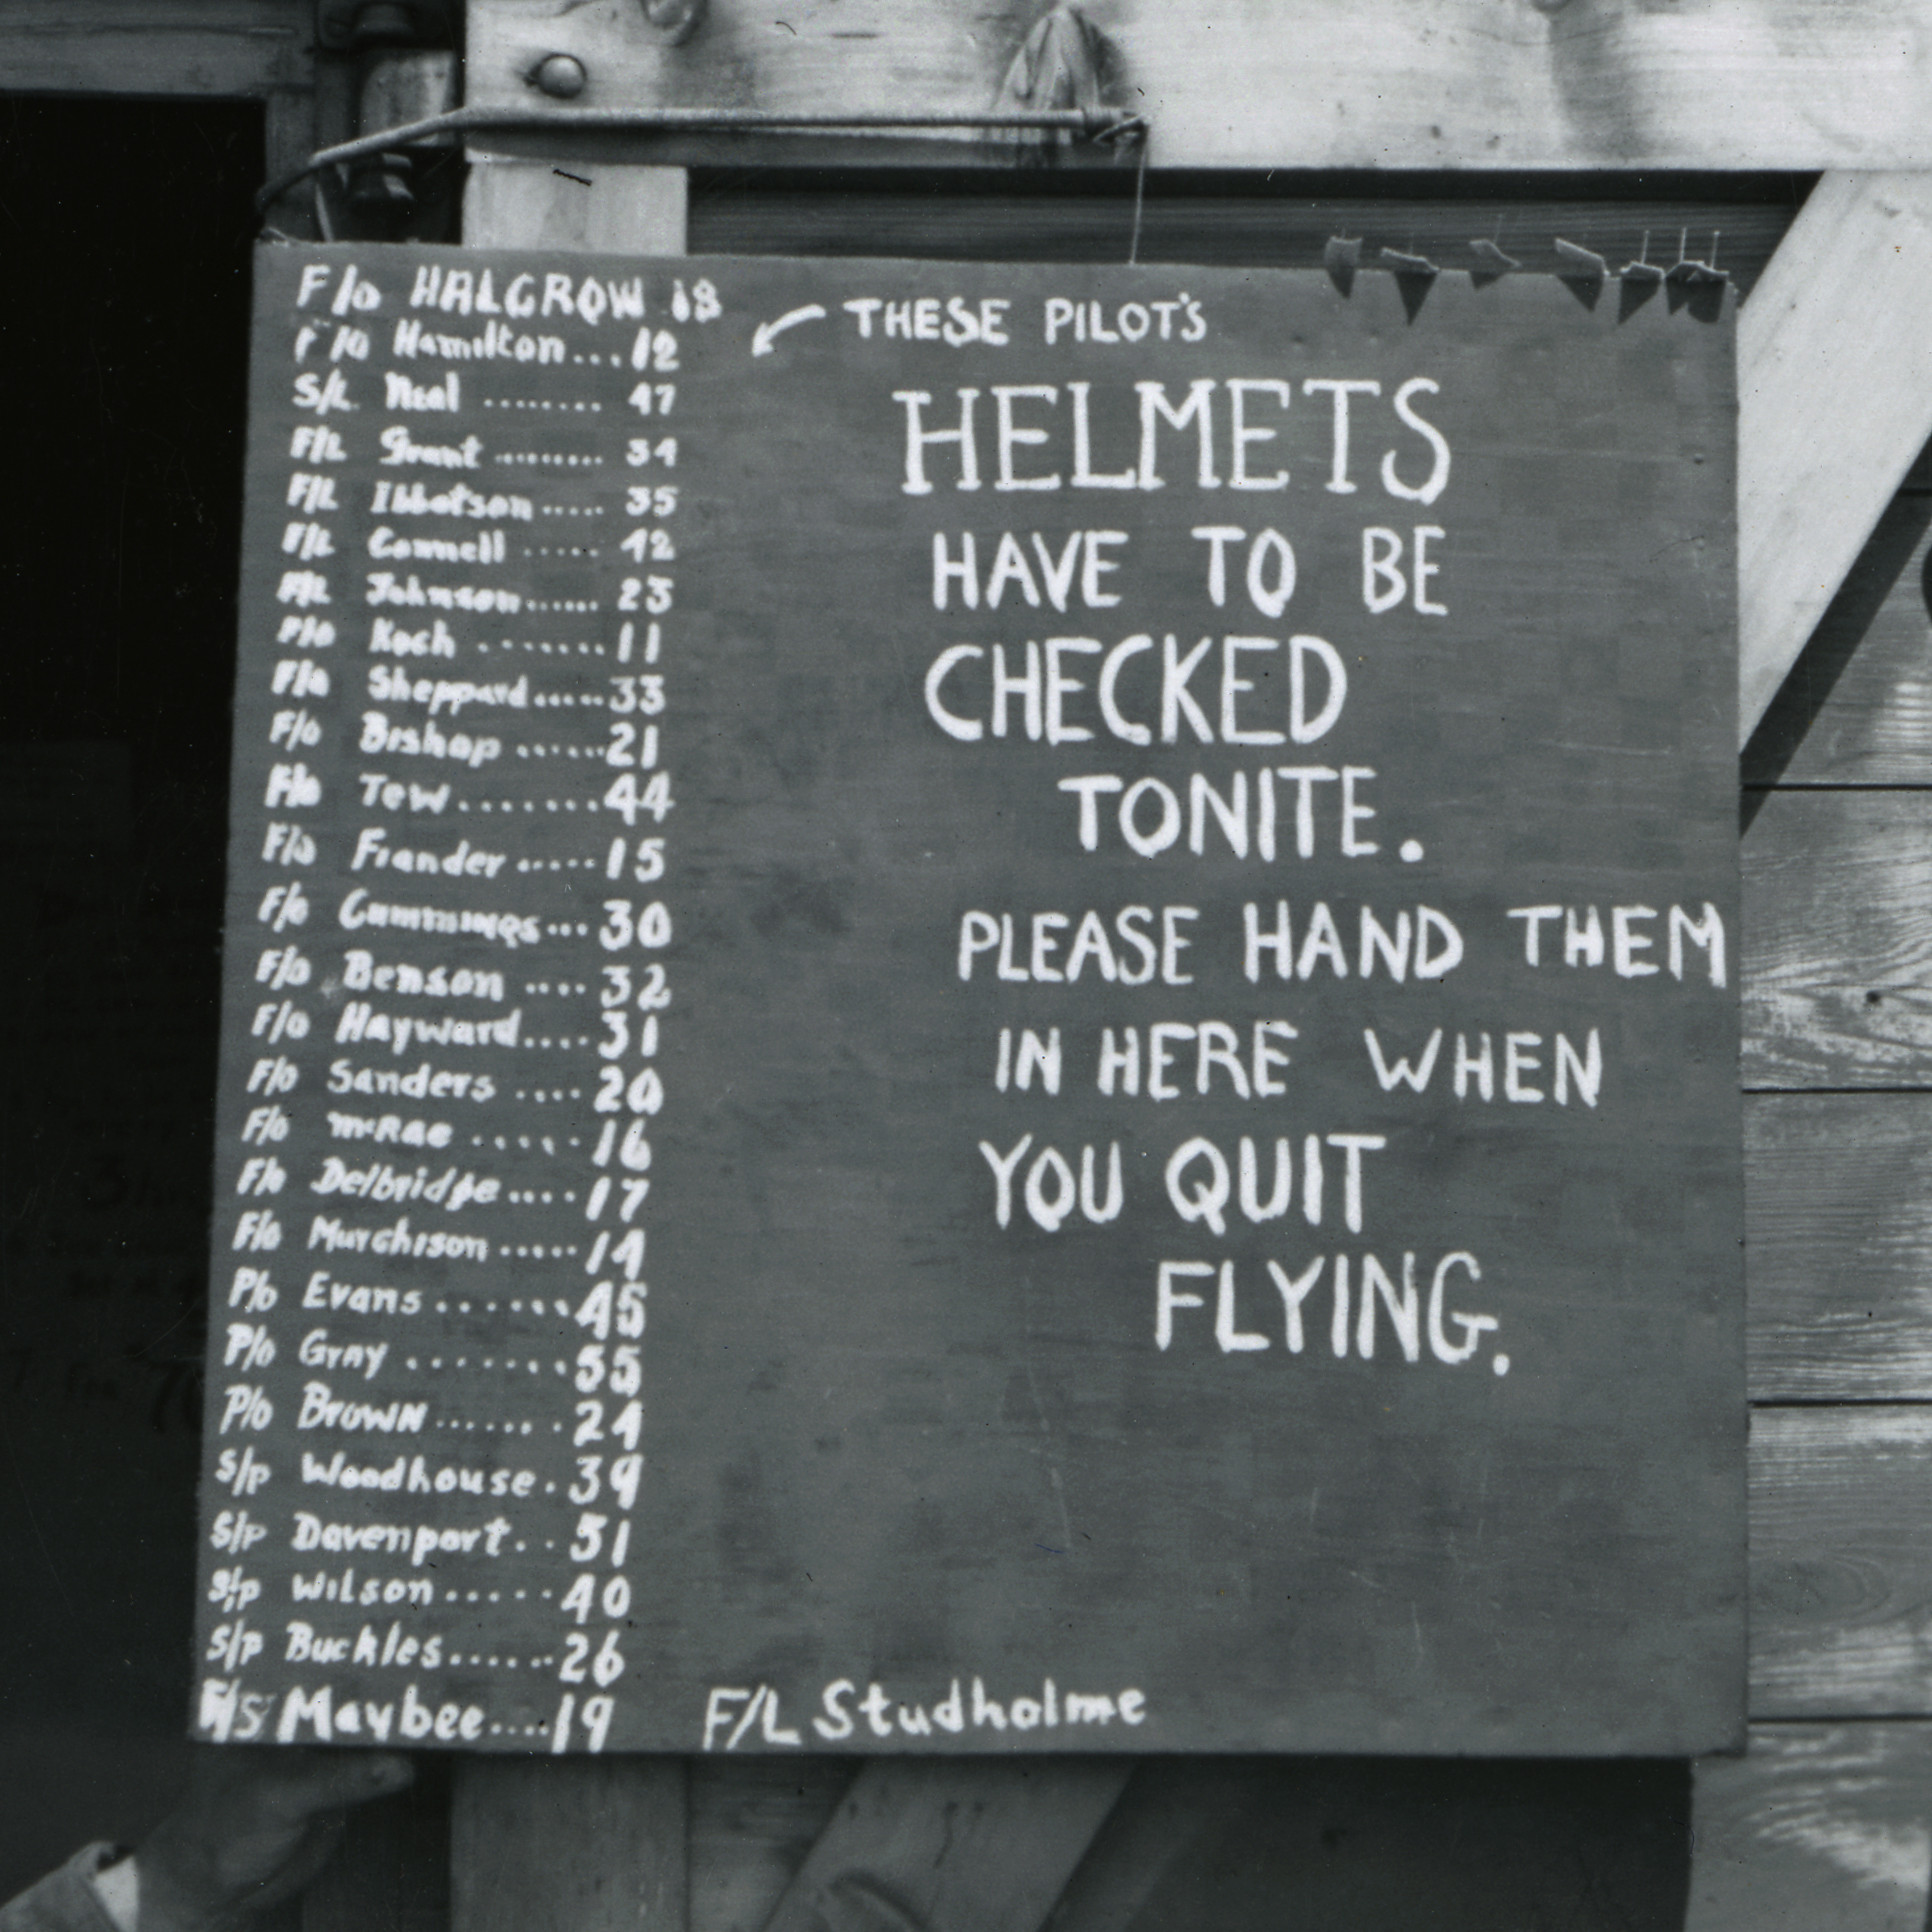 F/o HALGROW 18
F/o Hamilton...12
S/L Neal ........ 47
F/L Grant ......... 34
F/L Ibbotson ..... 35
F/L Connell ...... 42
F/L Johnson...... 23
P/o Koch ....... 11
F/o Sheppard.....33
F/o Bishop ......21
F/o Tew.......44
F/o Fiander .....15
F/o Cummings...30
F/o Benson ....32
F/o Hayward....31
F/o Sanders ....20
F/o McRae .....16
F/o Delbridge....17
F/o Murchison .....14
P/o Evans .......45
P/o Gray .......55
P/o Brown.......24
S/p Woodhouse.39
S/p Davenport..51
S/p Wilson......40
S/p Buckles......26
F/S Maybee....19
F/L Studholme
THESE PILOT'S
HELMETS
HAVE TO BE
CHECKED
TONITE.
PLEASE HAND THEM
IN HERE WHEN
YOU QUIT
FLYING.